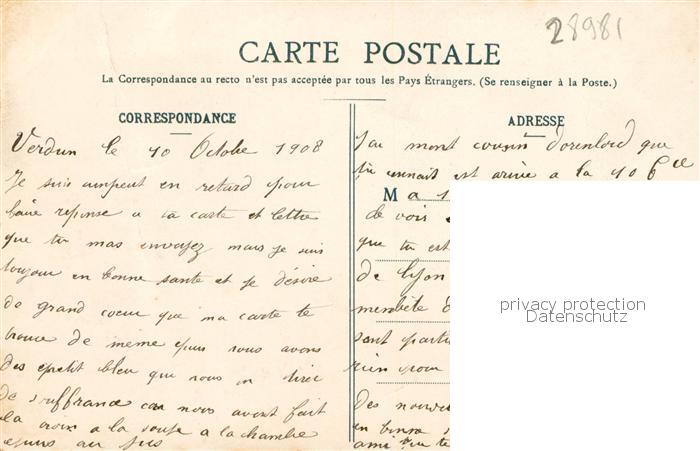 28981
CARTE POSTALE
La Correspondance au recto n'est pas acceptée par tous les Pays Étrangers. (Se renseigner à la Poste.)
CORRESPONDANCE
Verdun le 10 Octobe 1908
Je suis ampeut en retard pour
faire reponse a ta carte et lettre
que tu mas envoyez mais je suis
toujour en bonne sante et je désire
de grand coeur que ma carte te
trouve de meme puis nous avons
des petit bleu que nous on tirer
de souffrance car nous avont fait
la croix a la soupe a la chambre
epuis au jus
ADRESSE
J'ai mont cousin que
tu connait est arrivé a la 10 Cie
M a
de vois
que tu est
de Lyon
sont partit
rien pour
Des nouve
en bonne s
ami que te
privacy protection
Datenschutz